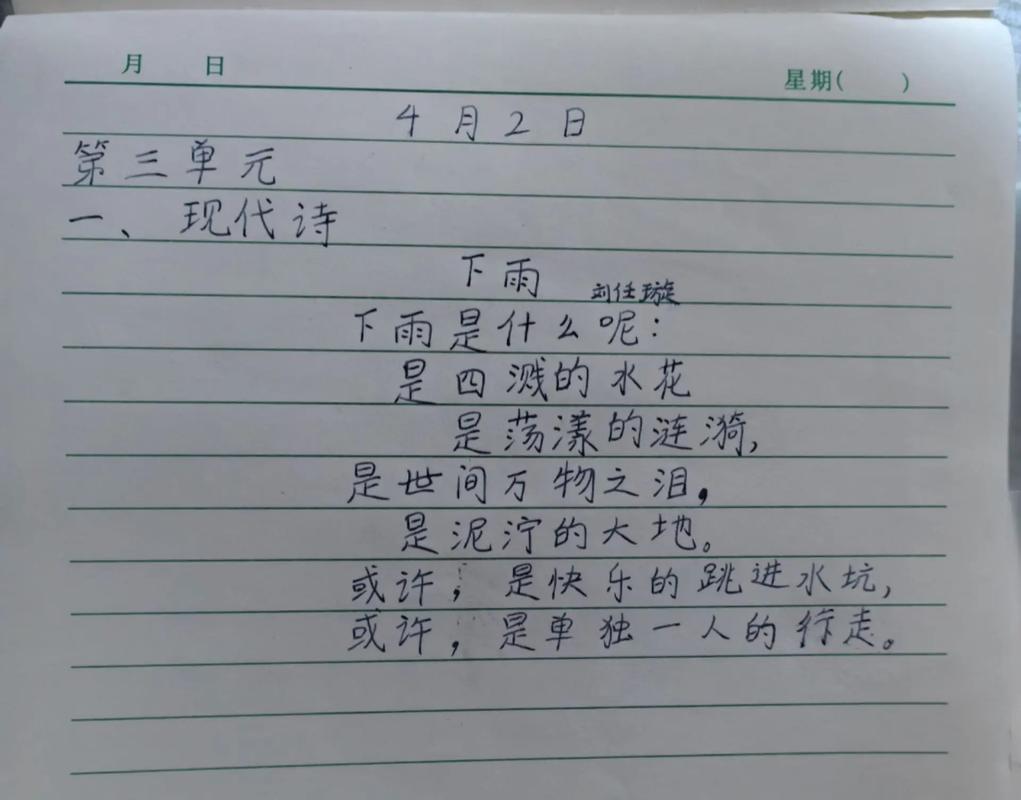 月 日 星期( )
4月2日
第三单元
一、现代诗
下雨
刘任璇
下雨是什么呢：
是四溅的水花
是荡漾的涟漪，
是世间万物之泪，
是泥泞的大地。
或许，是快乐的跳进水坑，
或许，是单独一人的行走。